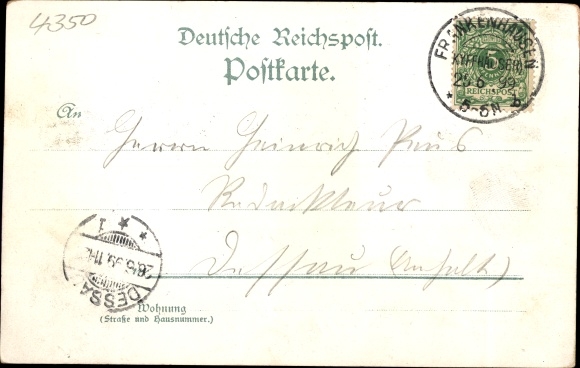 4350
Deutsche Reichspost.
Postkarte.
FRANKENHAUSEN
KYFFHÄUSER
25 6 99
* 5-6N. b.
REICHSPOST
An
Herrn Heinrich
Redakteur
Dessau (Anhalt)
* * 1
DESSA
Wohnung
(Straße und Hausnummer.)